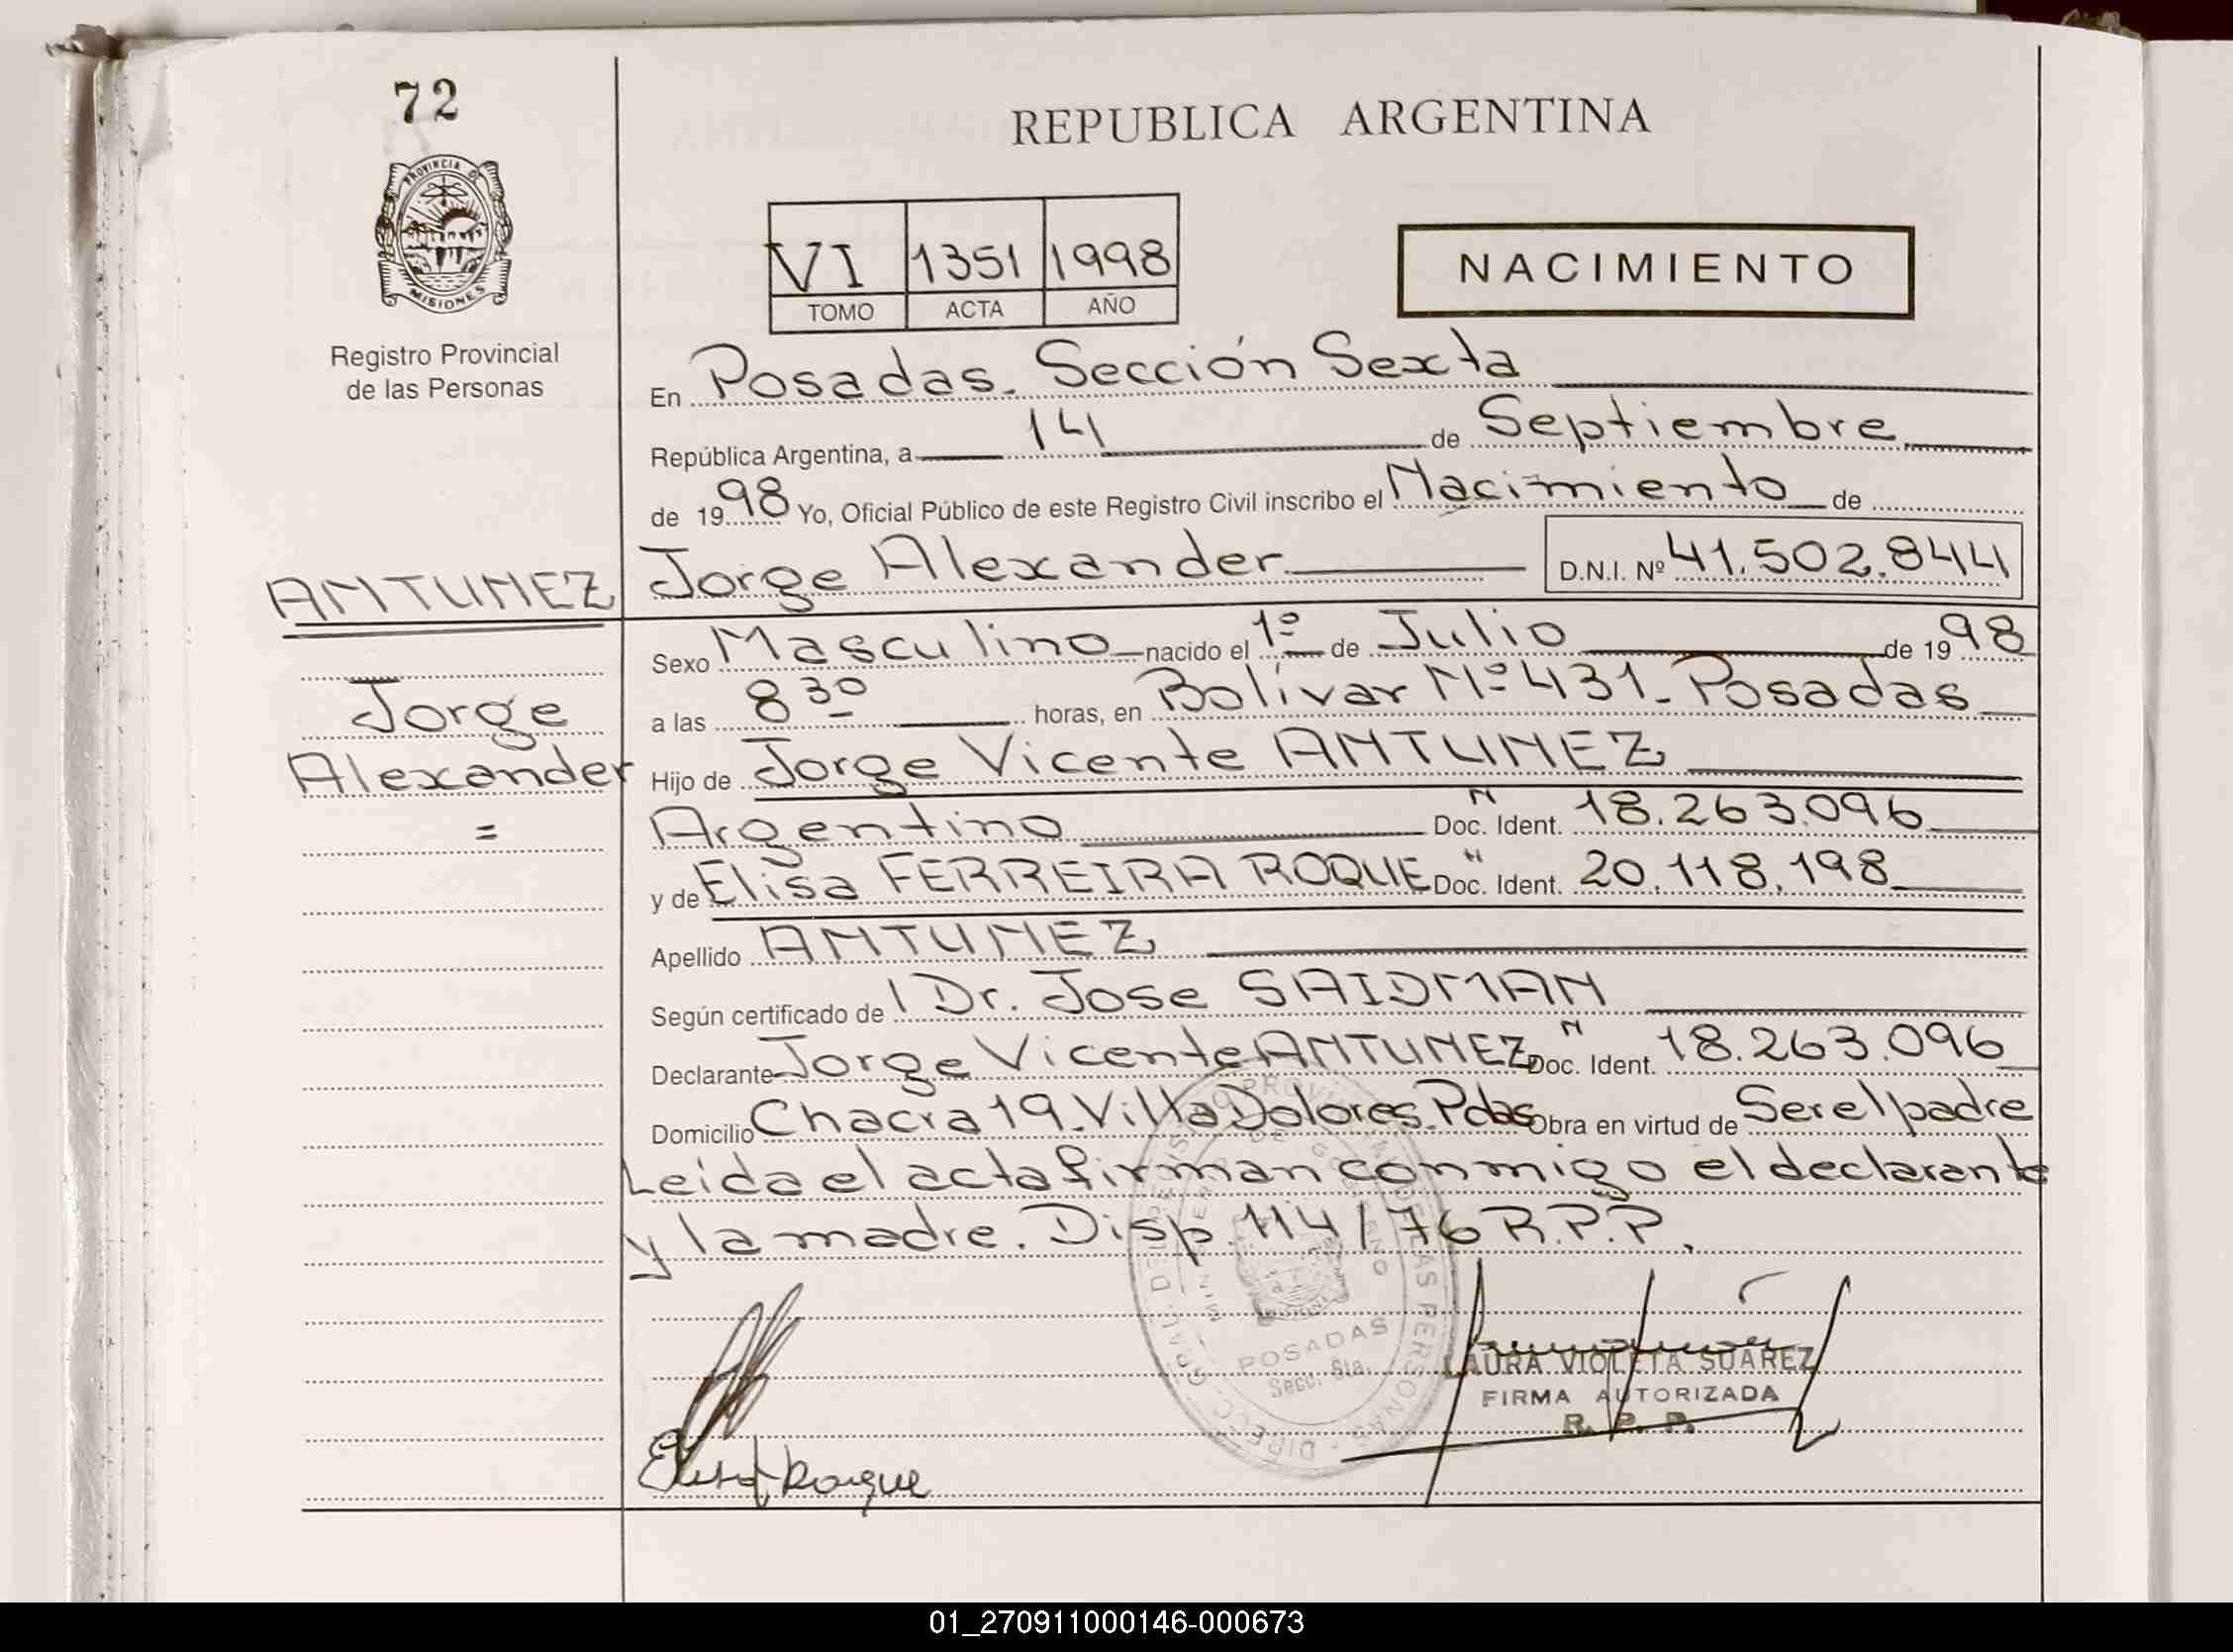 72
REPUBLICA ARGENTINA
PROVINCIA D
MISIONES
Registro Provincial
de las Personas
VI 1351 1998
TOMO ACTA AÑO
NACIMIENTO
En Posadas. Sección Sexta
República Argentina, a 14 de Septiembre
de 1998 Yo, Oficial Público de este Registro Civil inscribo el Nacimiento de
ANTUNEZ Jorge Alexander D.N.I. Nº 41.502.844
Sexo Masculino nacido el 1º de Julio de 1998
Jorge a las 8 30 horas, en Bolívar Nº 431 - Posadas
Alexander Hijo de Jorge Vicente ANTUNEZ
= Argentino Doc. Ident. N 18.263.096
y de Elisa FERREIRA ROQUE Doc. Ident. " 20.118.198
Apellido ANTUNEZ
Según certificado de Dr. Jose SAIDMAN
Declarante Jorge Vicente ANTUNEZ Doc. Ident. N 18.263.096
Domicilio Chacra 19. Villa Dolores. Pdas Obra en virtud de Ser el padre
Leída el acta firman conmigo el declarante
y la madre. Disp. 114/76 R.P.P.
POSADAS
Secc. 6ta.
LAURA VIOLETA SUAREZ
FIRMA AUTORIZADA
R. P. P.
Roque
01_270911000146-000673